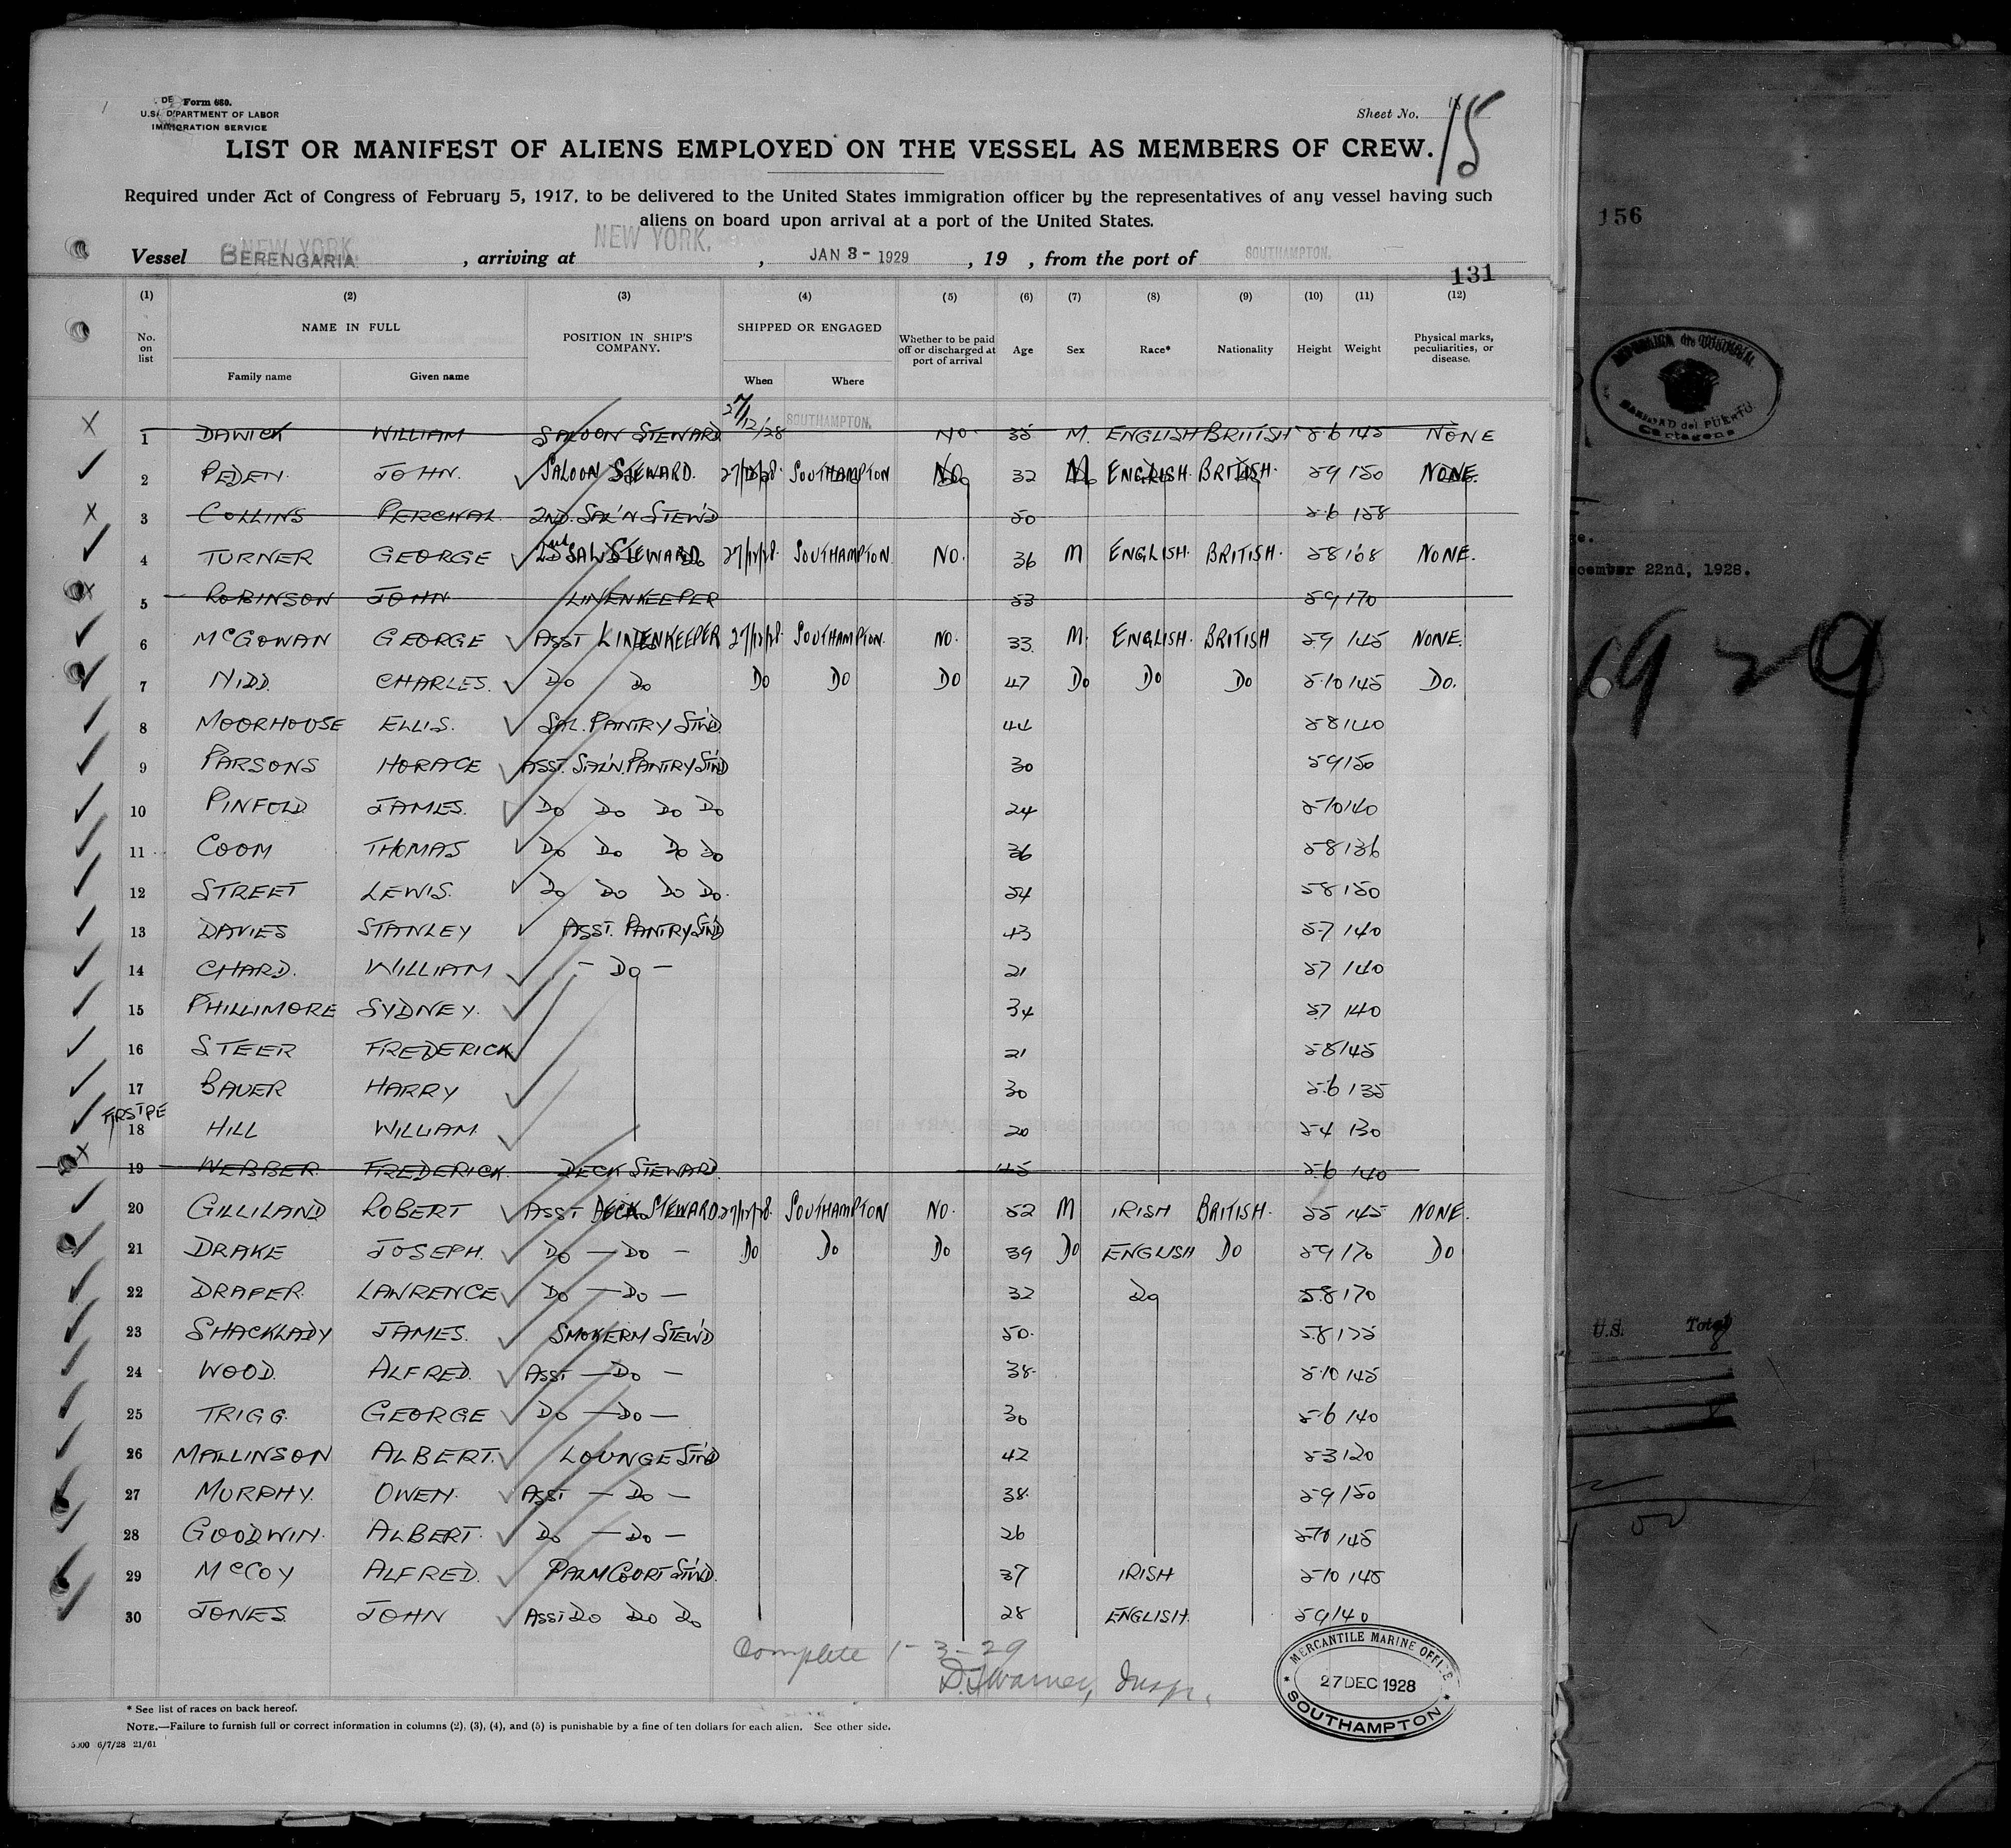 Form 680.
U.S. DEPARTMENT OF LABOR
IMMIGRATION SERVICE
Sheet No. 15
LIST OR MANIFEST OF ALIENS EMPLOYED ON THE VESSEL AS MEMBERS OF CREW.
Required under Act of Congress of February 5, 1917, to be delivered to the United States immigration officer by the representatives of any vessel having such
aliens on board upon arrival at a port of the United States.
Vessel BERENGARIA, arriving at NEW YORK., JAN 3 - 1929, 19 , from the port of SOUTHAMPTON.
131
(1) (2) (3) (4) (5) (6) (7) (8) (9) (10) (11) (12)
No. on list NAME IN FULL POSITION IN SHIP'S COMPANY. SHIPPED OR ENGAGED Whether to be paid off or discharged at port of arrival Age Sex Race* Nationality Height Weight Physical marks, peculiarities, or disease.
Family name Given name When Where
1 DAWICK WILLIAM SALOON STEWARD 27/12/28 SOUTHAMPTON. NO. 35 M. ENGLISH BRITISH 5.6 145 NONE
2 PEDEN. JOHN. SALOON STEWARD. 27/12/28. SOUTHAMPTON NO 32 M ENGLISH. BRITISH. 59 150 NONE.
3 COLLINS PERCIVAL 2ND. SAL'N STEW'D 50 5.6 158
4 TURNER GEORGE 2nd SAL STEWARD 27/12/28. SOUTHAMPTON NO. 36 M ENGLISH. BRITISH. 58 168 NONE.
5 ROBINSON JOHN LINENKEEPER 53 59 170
6 McGOWAN GEORGE ASST LINENKEEPER 27/12/28. SOUTHAMPTON. NO. 33 M. ENGLISH. BRITISH 5.9 145 NONE.
7 NIDD. CHARLES. DO DO DO DO DO 47 DO DO DO 5.10 145 DO.
8 MOORHOUSE ELLIS. SAL. PANTRY ST'WD 44 58 140
9 PARSONS HORACE ASST. SAL'N. PANTRY ST'WD 30 59 150
10 PINFOLD JAMES. DO DO DO DO 24 5 10 140
11 COOM THOMAS DO DO DO DO 36 58 136
12 STREET LEWIS. DO DO DO DO. 54 58 150
13 DAVIES STANLEY ASST. PANTRY ST'WD 43 5.7 140
14 CHARD. WILLIAM - DO - 21 57 140
15 PHILLIMORE SYDNEY. 34 5.7 140
16 STEER FREDERICK 21 58 145
17 BAUER HARRY 30 5.6 135
FIRST PE
18 HILL WILLIAM 20 54 130
19 WEBBER FREDERICK. DECK STEWARD. 45 5.6 140
20 GILLILAND ROBERT ASST DECK STEWARD 27/12/28. SOUTHAMPTON NO. 52 M IRISH BRITISH. 55 145 NONE.
21 DRAKE JOSEPH. DO — DO — DO DO DO 39 DO ENGLISH DO 59 170 DO
22 DRAPER. LAWRENCE DO — DO — 32 DO 5.8 170
23 SHACKLADY JAMES. SMOKERM STEW'D 50.
24 WOOD. ALFRED. ASST — DO — 38. 5.10 145
25 TRIGG. GEORGE DO — DO — 30 5.6 140
26 MALLINSON ALBERT. LOUNGE ST'WD 42 53 120
27 MURPHY. OWEN. ASST — DO — 38. 59 150
28 GOODWIN. ALBERT. DO — DO — 26 5 10 145
29 McCOY ALFRED. PALM COURT ST'WD. 37 IRISH 5 10 145
30 JONES JOHN ASST DO DO DO 28 ENGLISH. 59 140
Complete 1-3-29
Insp.
MERCANTILE MARINE OFFICE
27 DEC 1928
SOUTHAMPTON
* See list of races on back hereof.
NOTE.—Failure to furnish full or correct information in columns (2), (3), (4), and (5) is punishable by a fine of ten dollars for each alien. See other side.
6/7/28 21/61
156
SANIDAD del PUERTO
Cartagena
22nd, 1928.
1929
U.S. Total